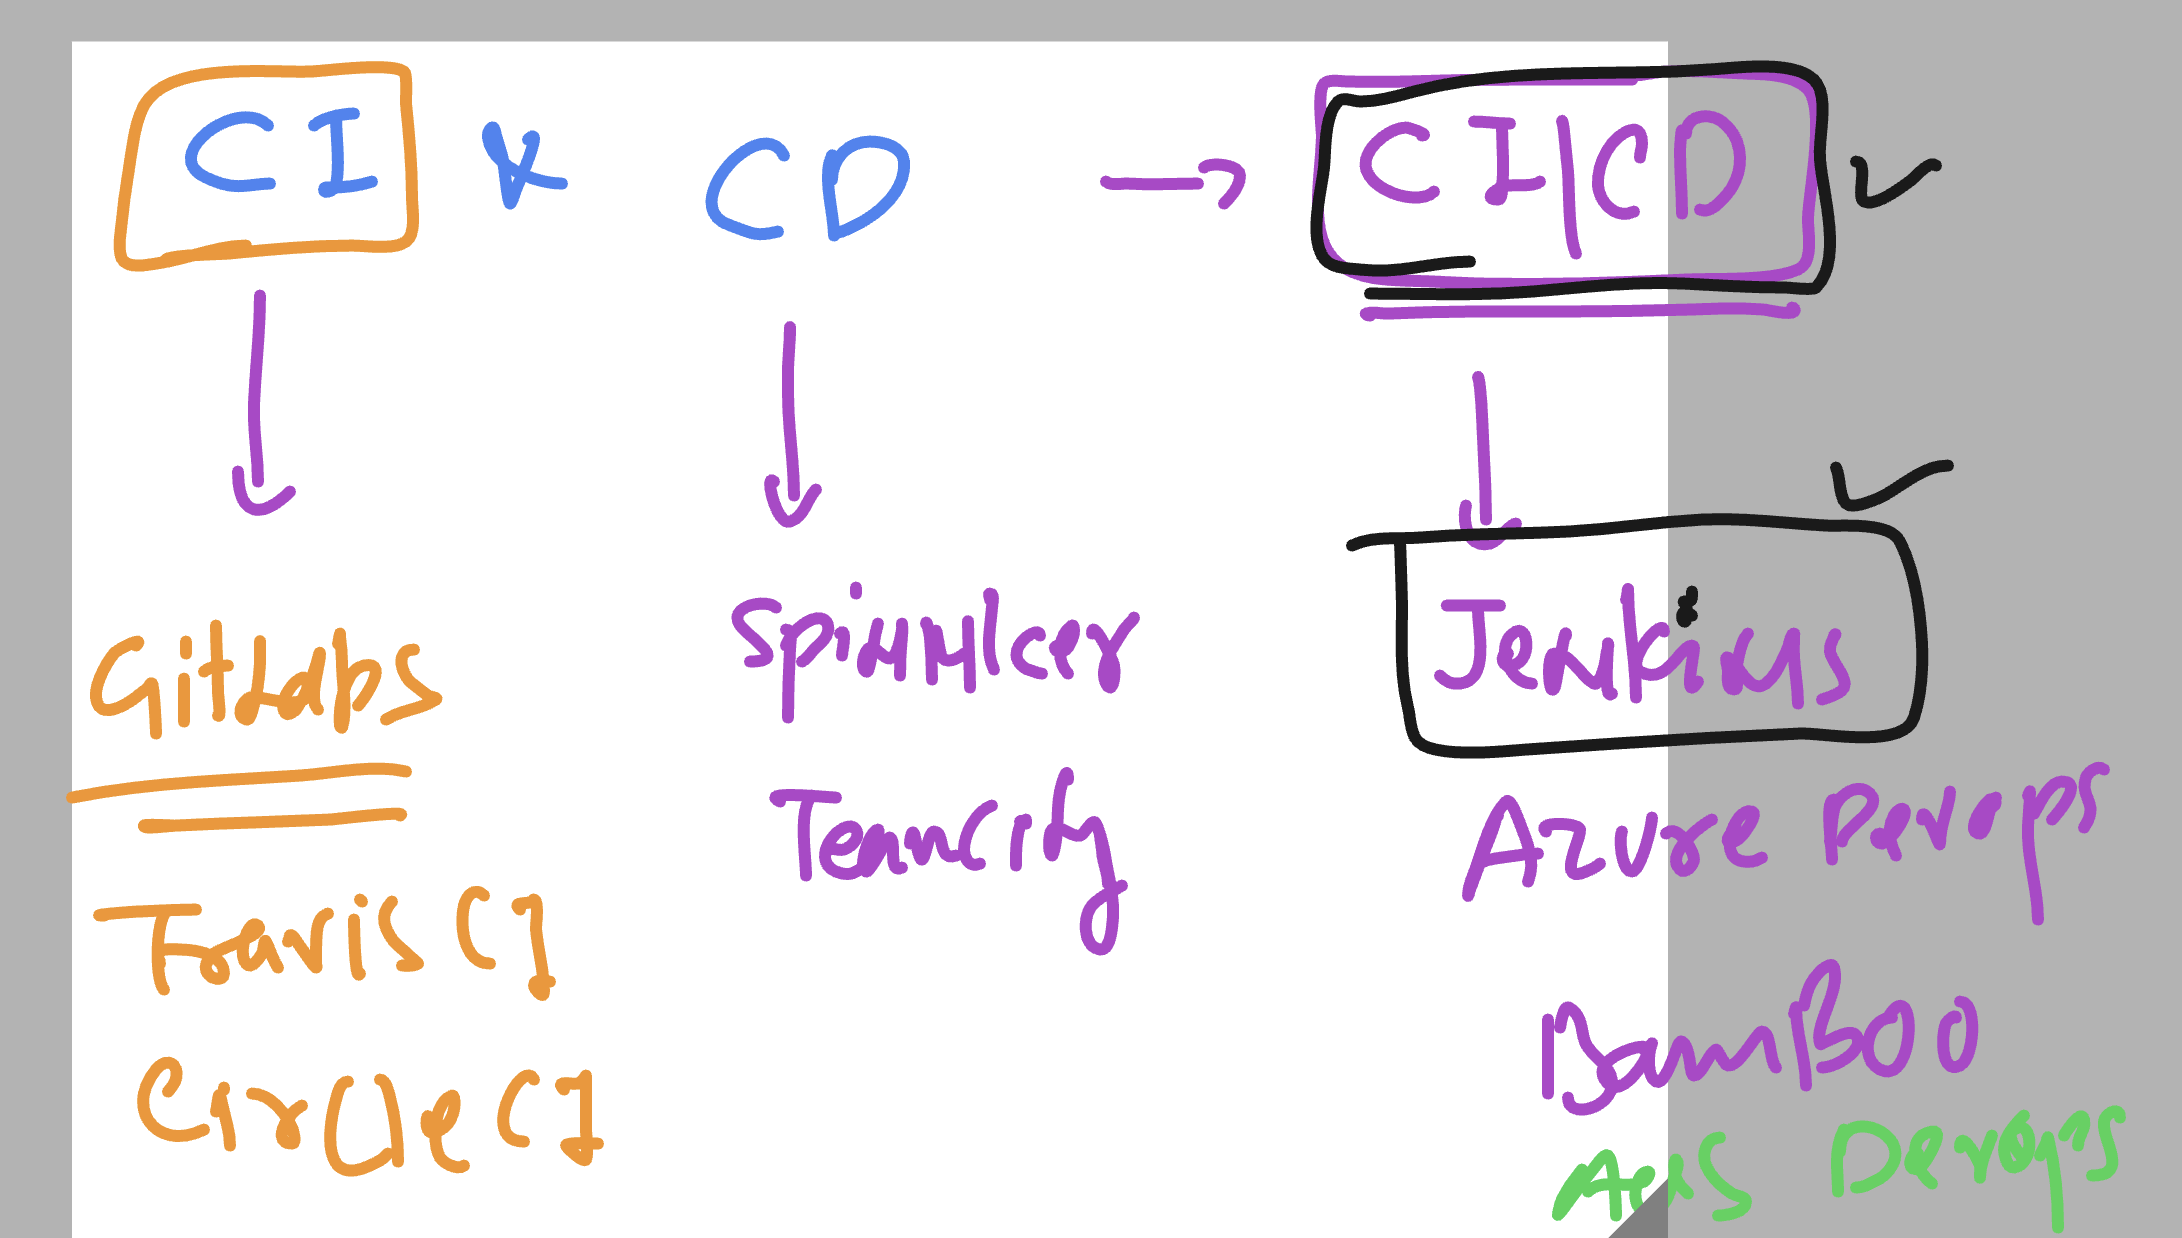 CI & CD → CI|CD
GitLabs
Travis CI
Circle CI
Spinnker
TeamCity
Jenkins
Azure Devops
BamBoo
Aws Devops